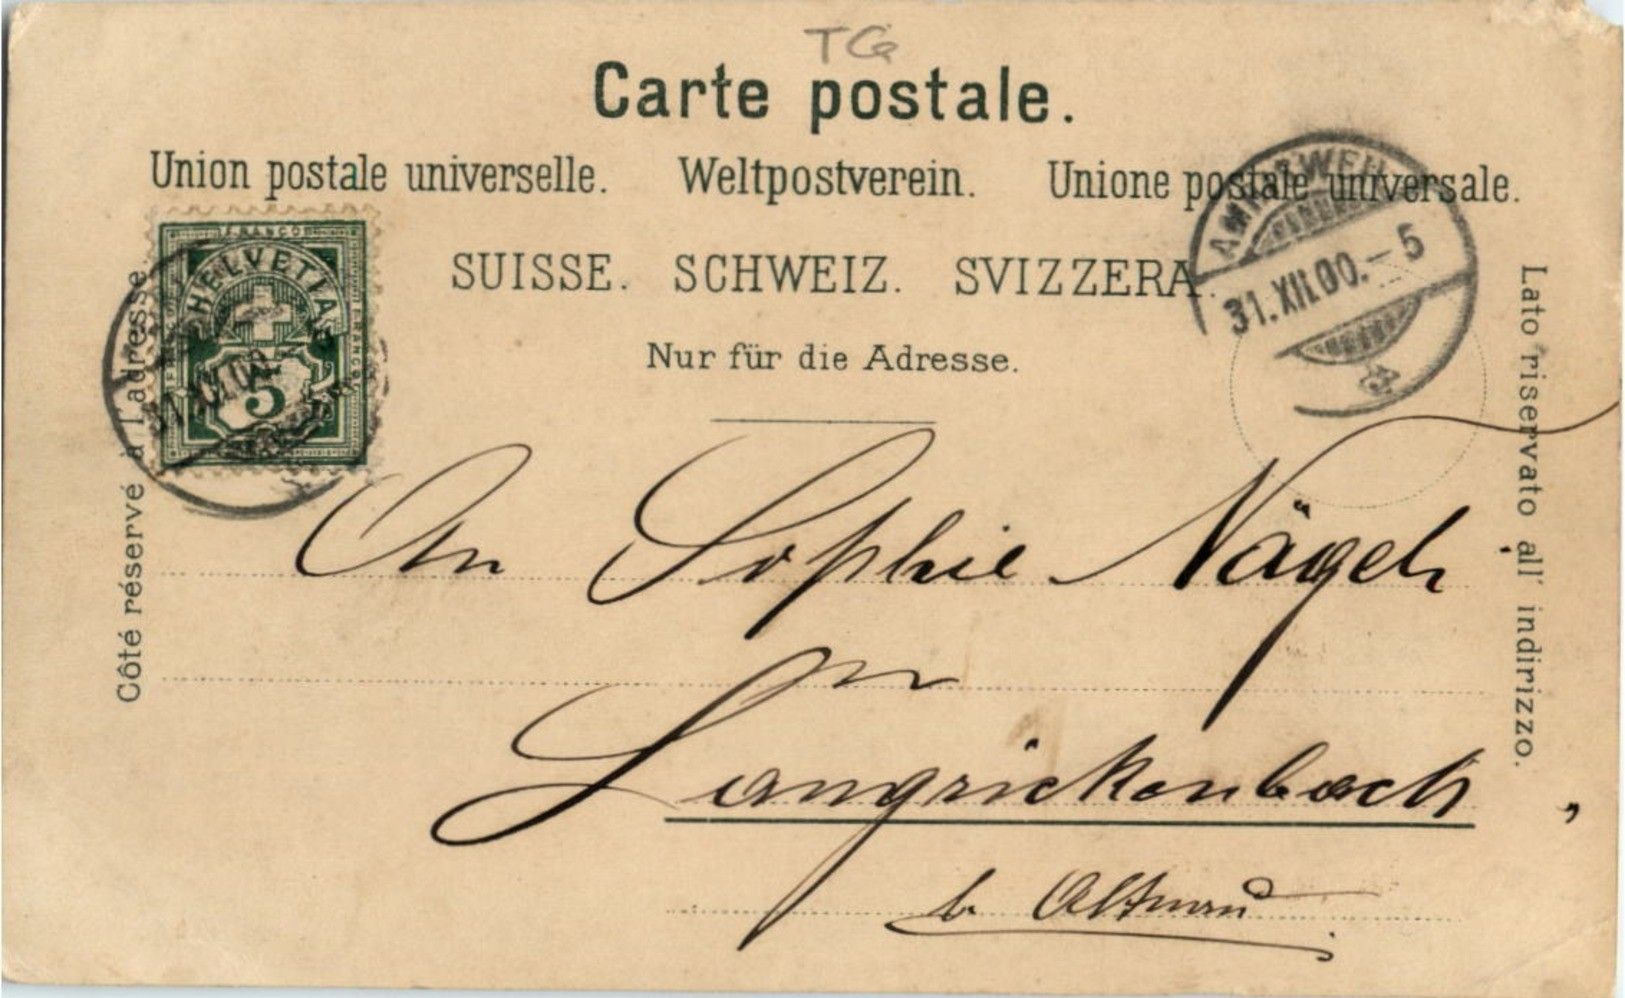 TG
Carte postale.
Union postale universelle. Weltpostverein. Unione postale universale.
SUISSE. SCHWEIZ. SVIZZERA.
Nur für die Adresse.
FRANCO
HELVETIA
5
31.XII.00.-5
Côté réservé à l'adresse
Lato riservato all' indirizzo.
An Sophie Nägeli
in
Langrickenbach,
b. Altnau